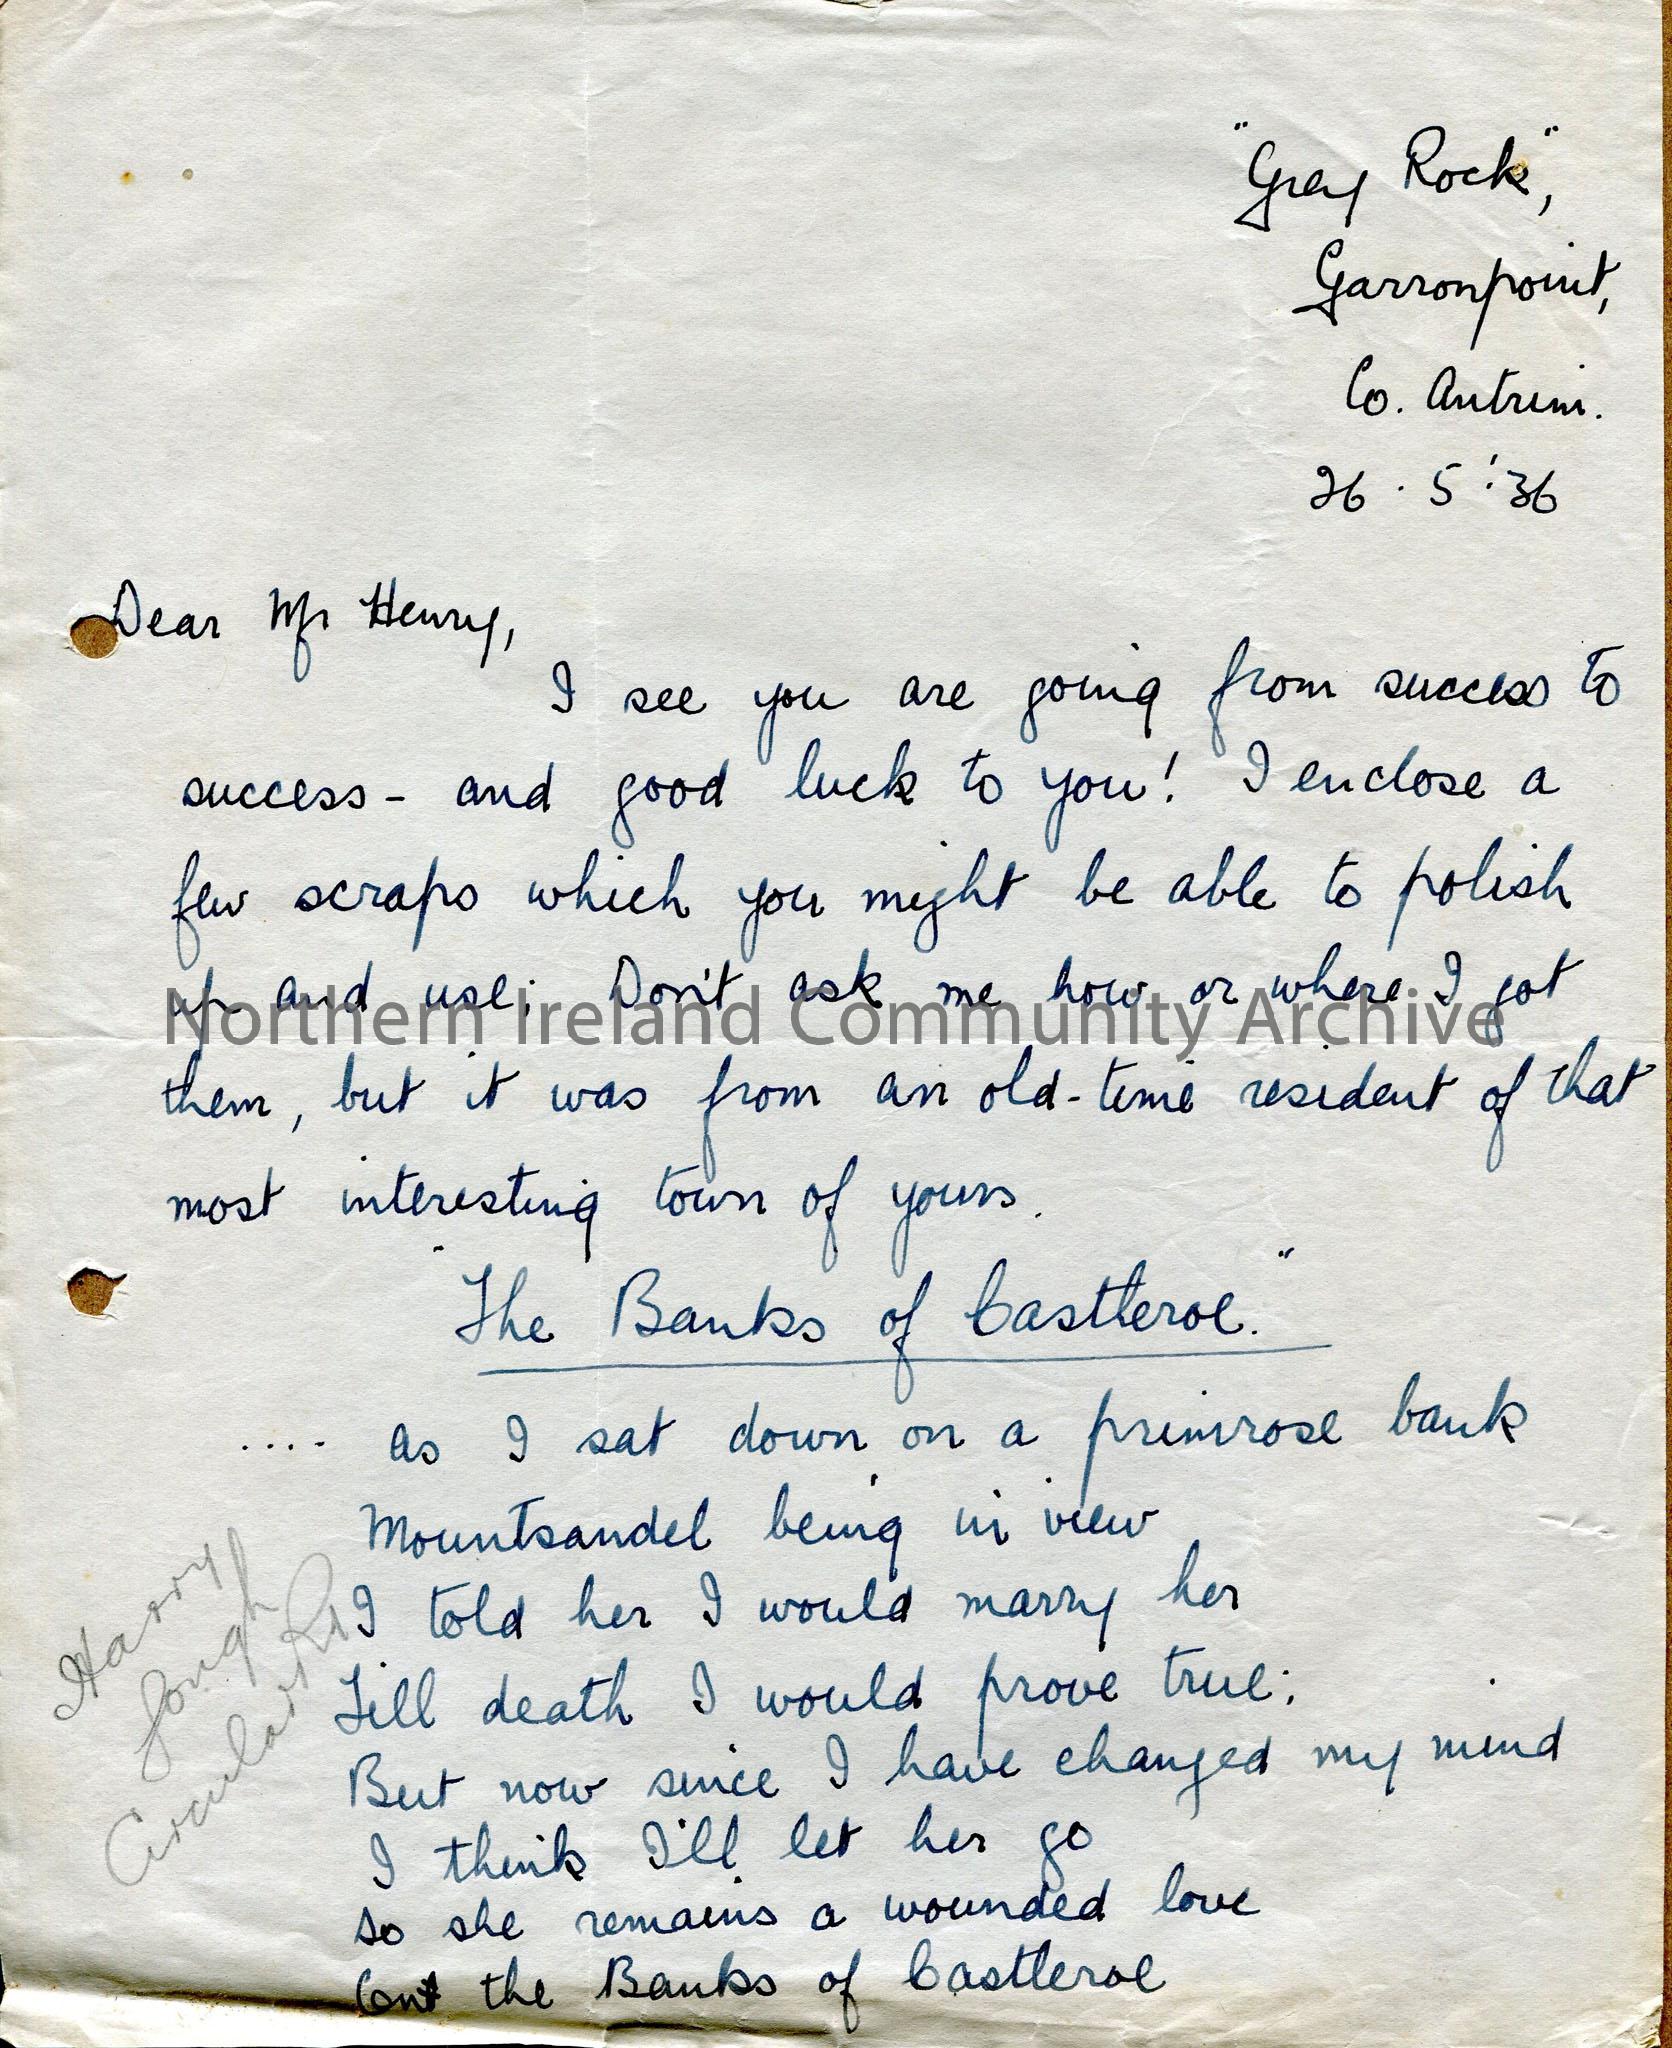 "Grey Rock",
Garronpoint,
Co. Antrim.
26.5.'36
Dear Mr Henry,
I see you are going from success to
success - and good luck to you! I enclose a
few scraps which you might be able to polish
up and use; Don't ask me how or where I got
Northern Ireland Community Archive
them, but it was from an old-time resident of that
most interesting town of yours.
"The Banks of Castleroe."
.... As I sat down on a primrose bank
Mountsandel being in view
I told her I would marry her
Till death I would prove true;
But now since I have changed my mind
I think I'll let her go
So she remains a wounded love
On the Banks of Castleroe
Harry
Circular Rd